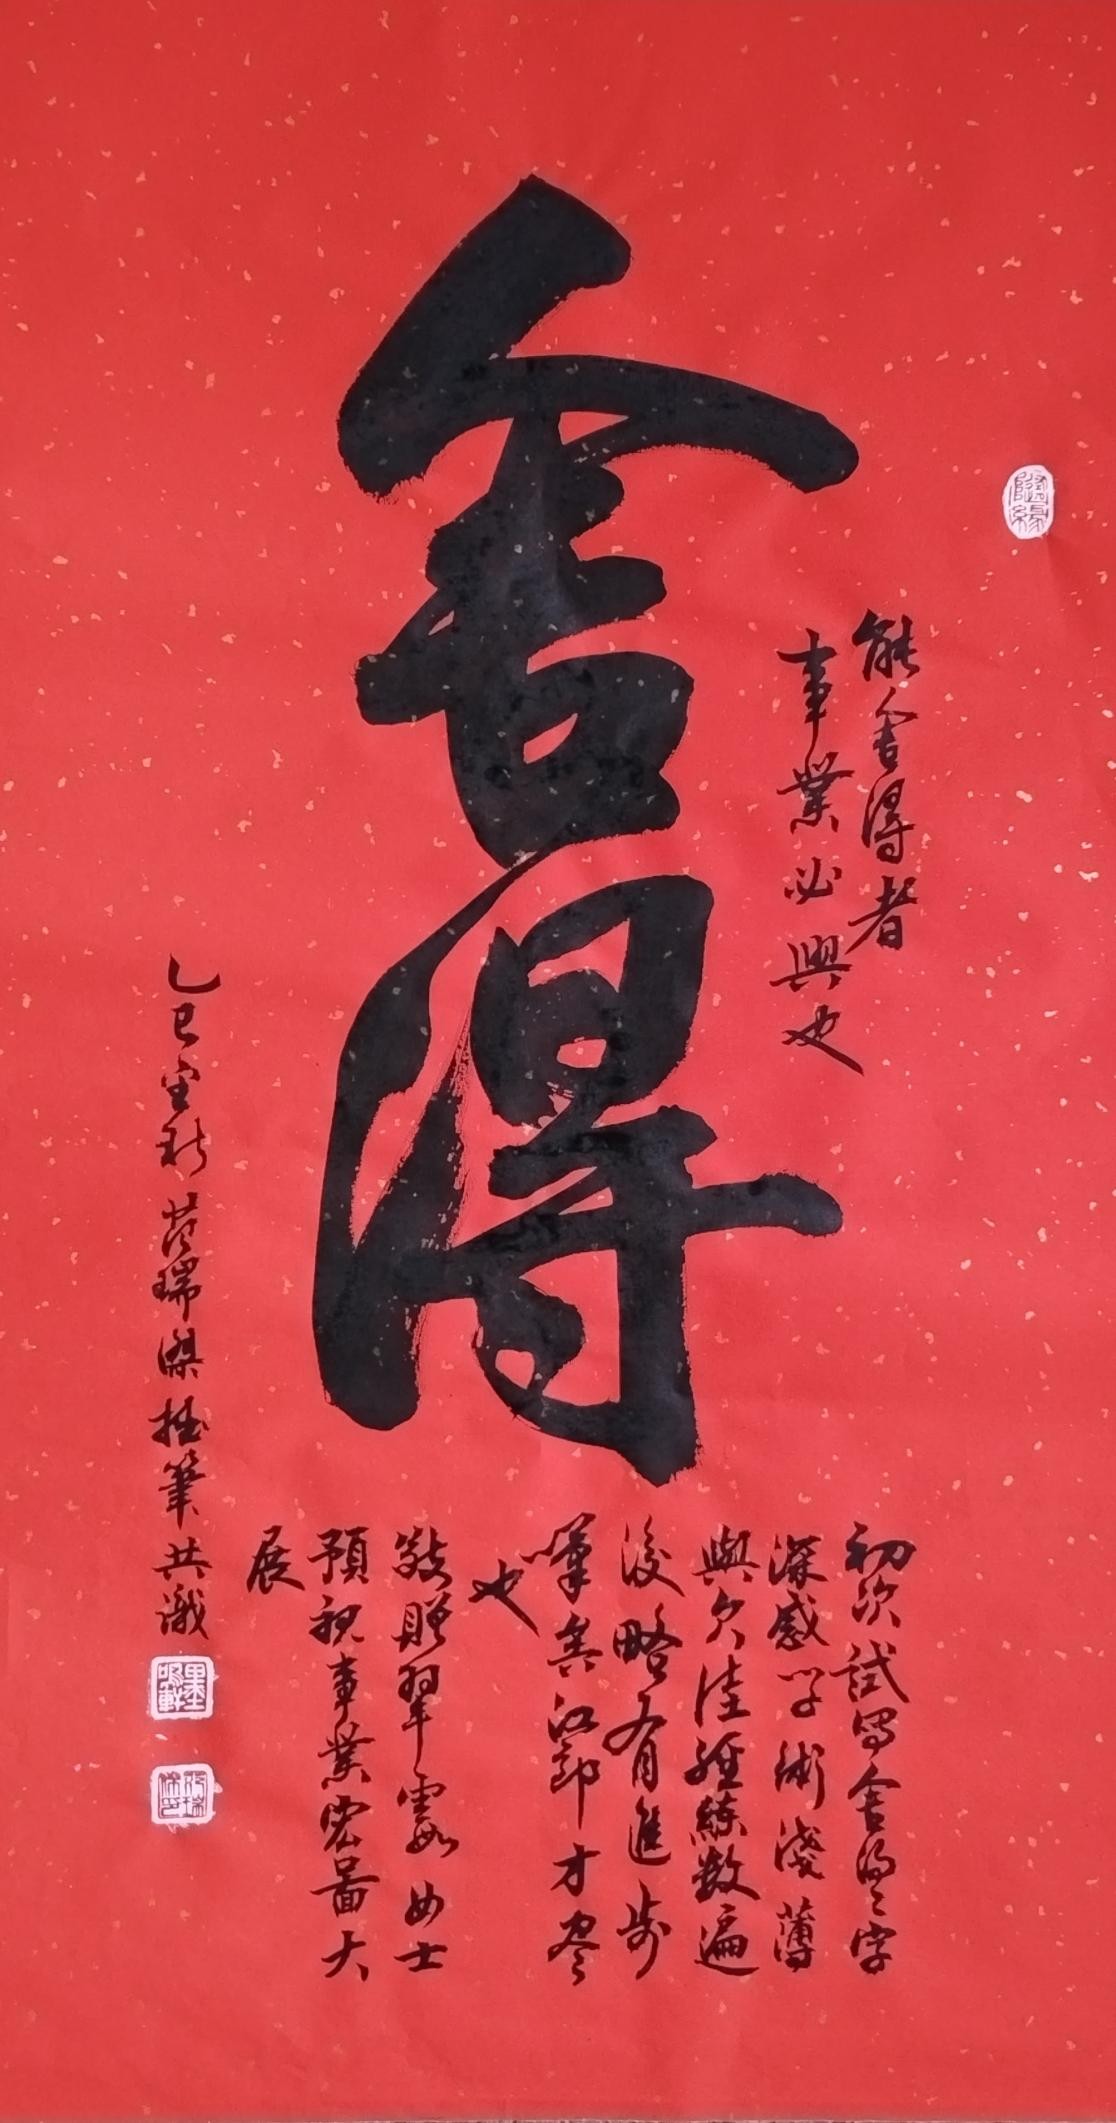 舍得
隨緣
能舍得者
事業必興也
初次試寫舍得之字
深感學術淺薄
與欠佳經練数遍
後略有進步
嘆矣江郎才盡
也
敬贈翠霞女士
預祝事業宏圖大
展
乙巳金秋范瑞傑拙筆共識